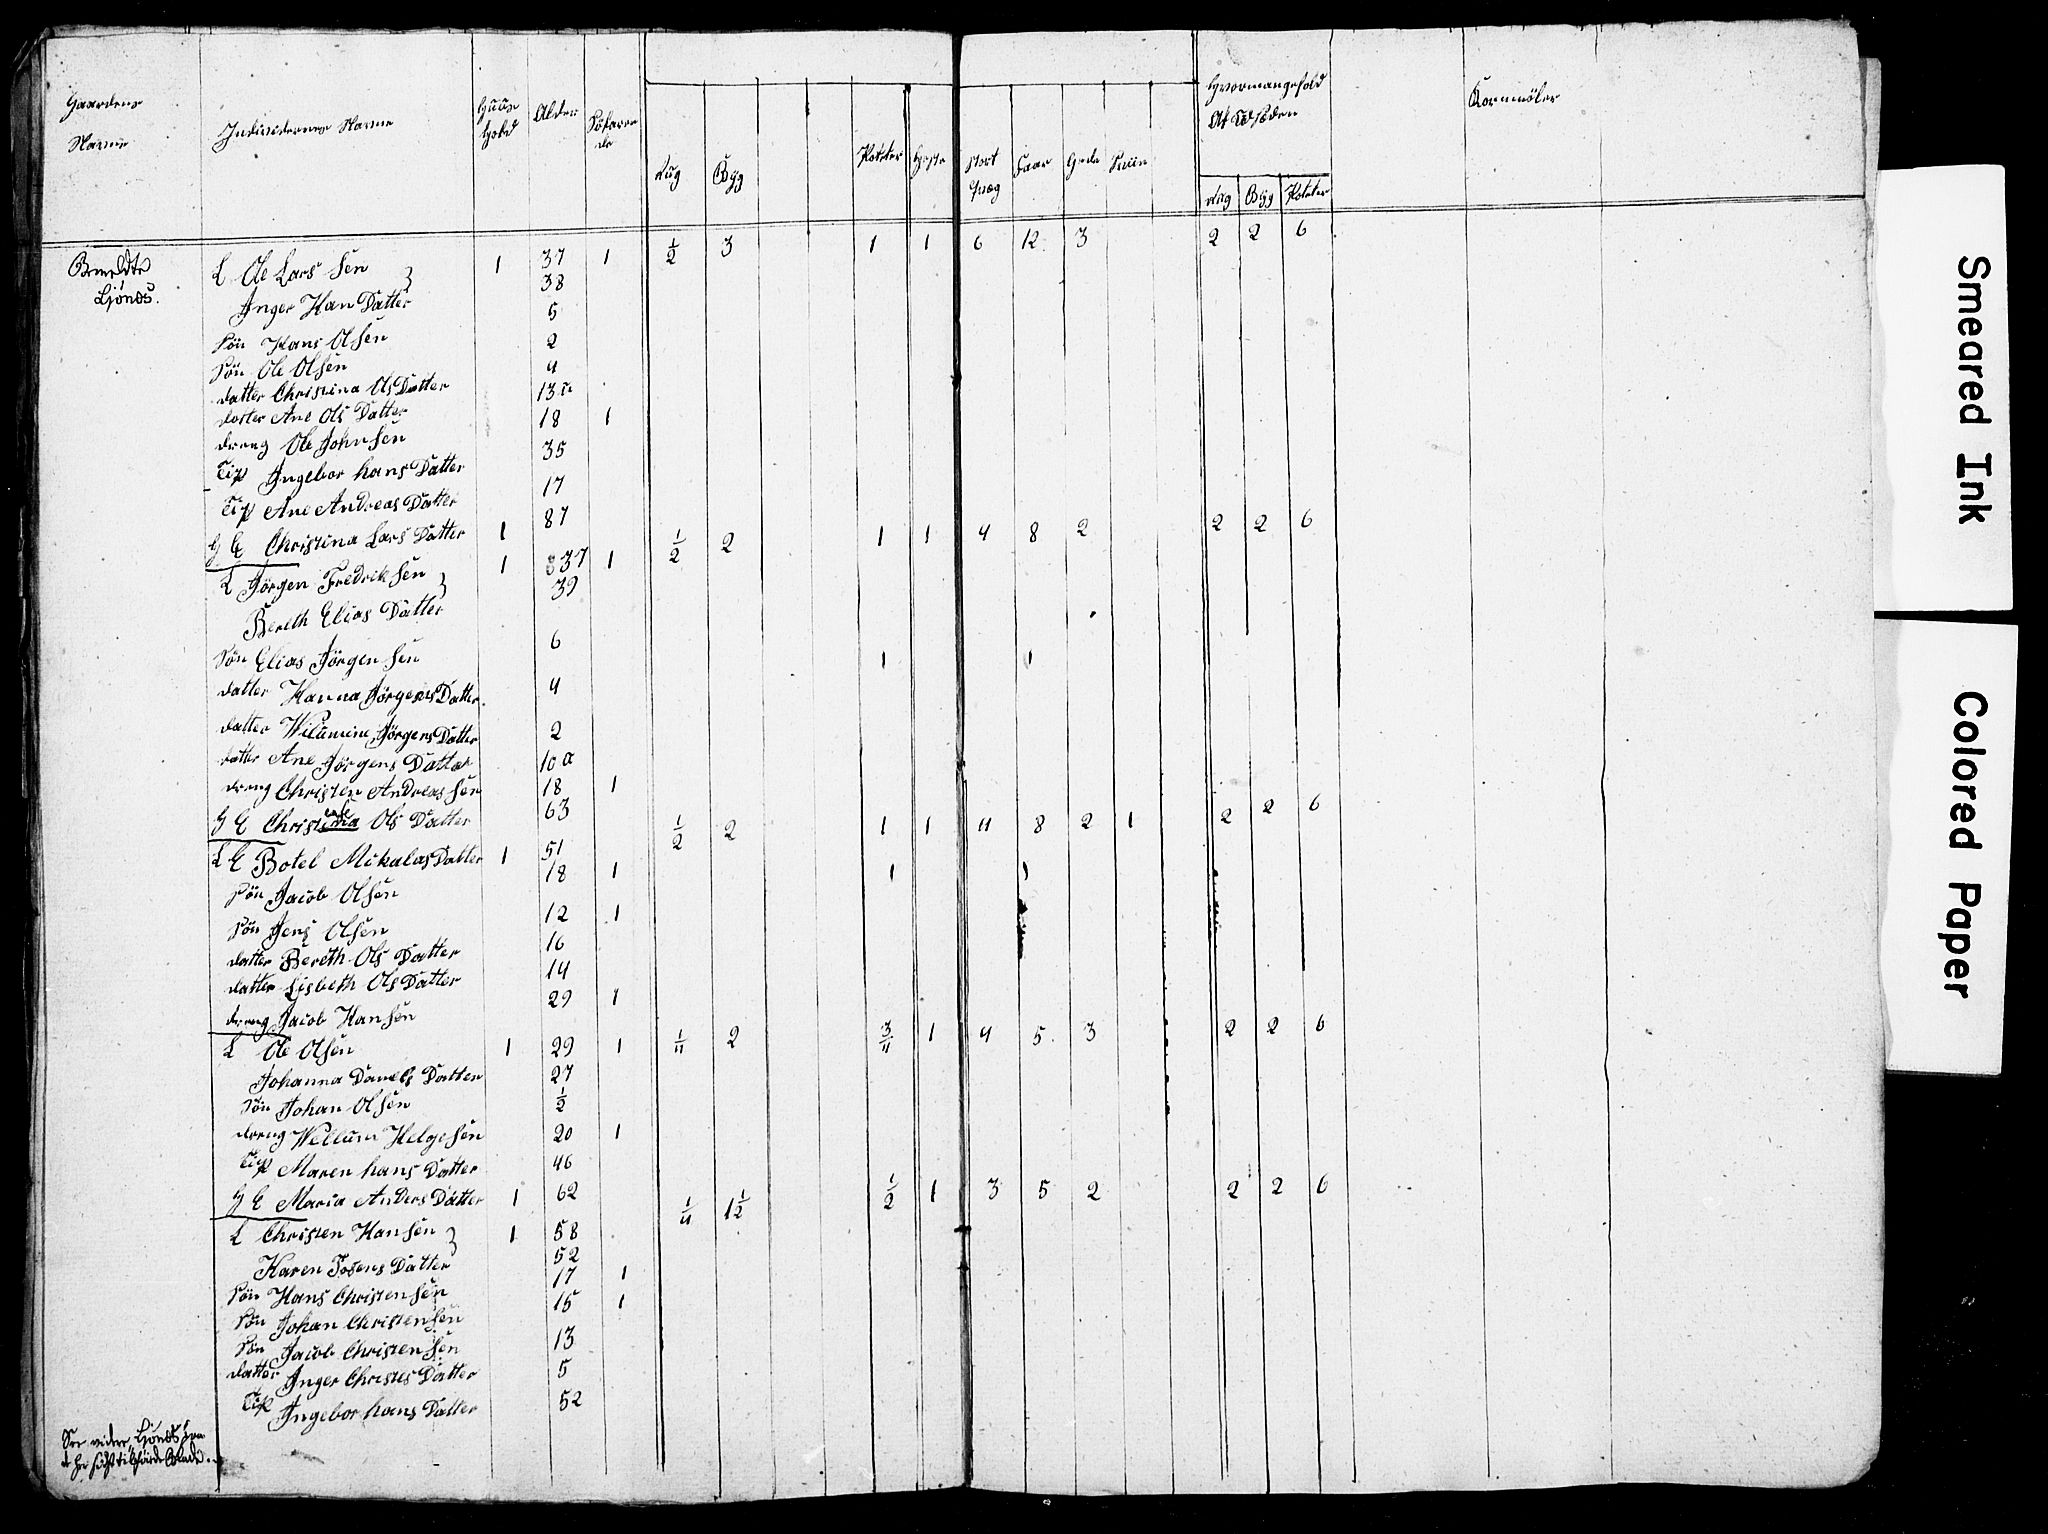 Gaardens Navne
Individernes Navne
Huus hold
Alder
Søfaren de
Rug
Byg
Poteter
Heste
stort qvæg
Faar
Gede
Sviin
Hvormangefold Af Udsæden
Rug
Byg
Poteter
Kornmøler
Bemeldte L Ole Lars Sen } 1 37 1 1/2 3 1 1 6 12 3 2 2 6
Ljønds. Inger Han Datter 38
Søn Hans Olsen 5
Søn Ole Olsen 2
datter Christina Ols Datter 4
datter Ane Ols Datter 13
dreng Ole JohnSen 18 1
Tip Ingebor hans Datter 35
Tip Ane Andreas Datter 17
G E Christina Lars Datter 1 87
L Jørgen FredrikSen } 1 37 1 1/2 2 1 1 4 8 2 2 2 6
Bereth Elias Datter 39
Søn Elias JørgenSen 6 1 1
datter Hanna Jørgens Datter. 4
datter Wilumine Jørgens Datter 2
datter Ane Jørgens Datter 10
dreng Christen AndreasSen 18 1
G E Ols Datter 63
L E Botel Mikalas Datter 1 51 1/2 2 1 1 4 8 2 1 2 2 6
Søn Jacob OlSen 18 1 1 1
Søn Jens OlSen 12 1
datter Bereth Ols Datter 16
datter Lisbeth Ols Datter 14
dreng Jacob HanSen 29 1
L Ole OlSen 1 29 1 1/4 2 3/4 1 4 5 3 2 2 6
Johanna Danels Datter 27
Søn Johan OlSen 1/2
dreng Wellum HelgeSen 20 1
Tip Maren hans Datter 46
G E Maria Anders Datter 1 62
L Christen HanSen } 1 58 1/4 1 1/2 1/2 1 3 5 2 2 2 6
Karen Tosens Datter 52
Søn Hans ChristenSen 17 1
Søn Johan ChristenSen 15 1
Søn Jacob ChristenSen 13
datter Inger Christes Datter 5
Tip Ingebor hans Datter 52
See videre Ljønds
Smeared Ink
Colored Paper